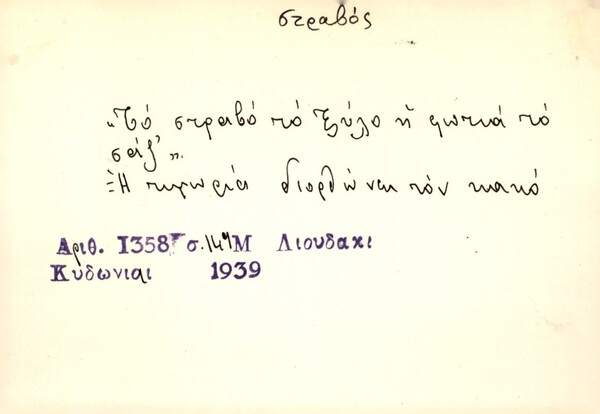 στραβός
„Τό στραβό τό ξύλο ἡ φωτιά τό
σάζ'".
Ἡ τιμωρία διορθώνει τόν κακό
Αριθ. 1358 σ. 147 Μ Λιουδακι
Κυδωνιαι 1939